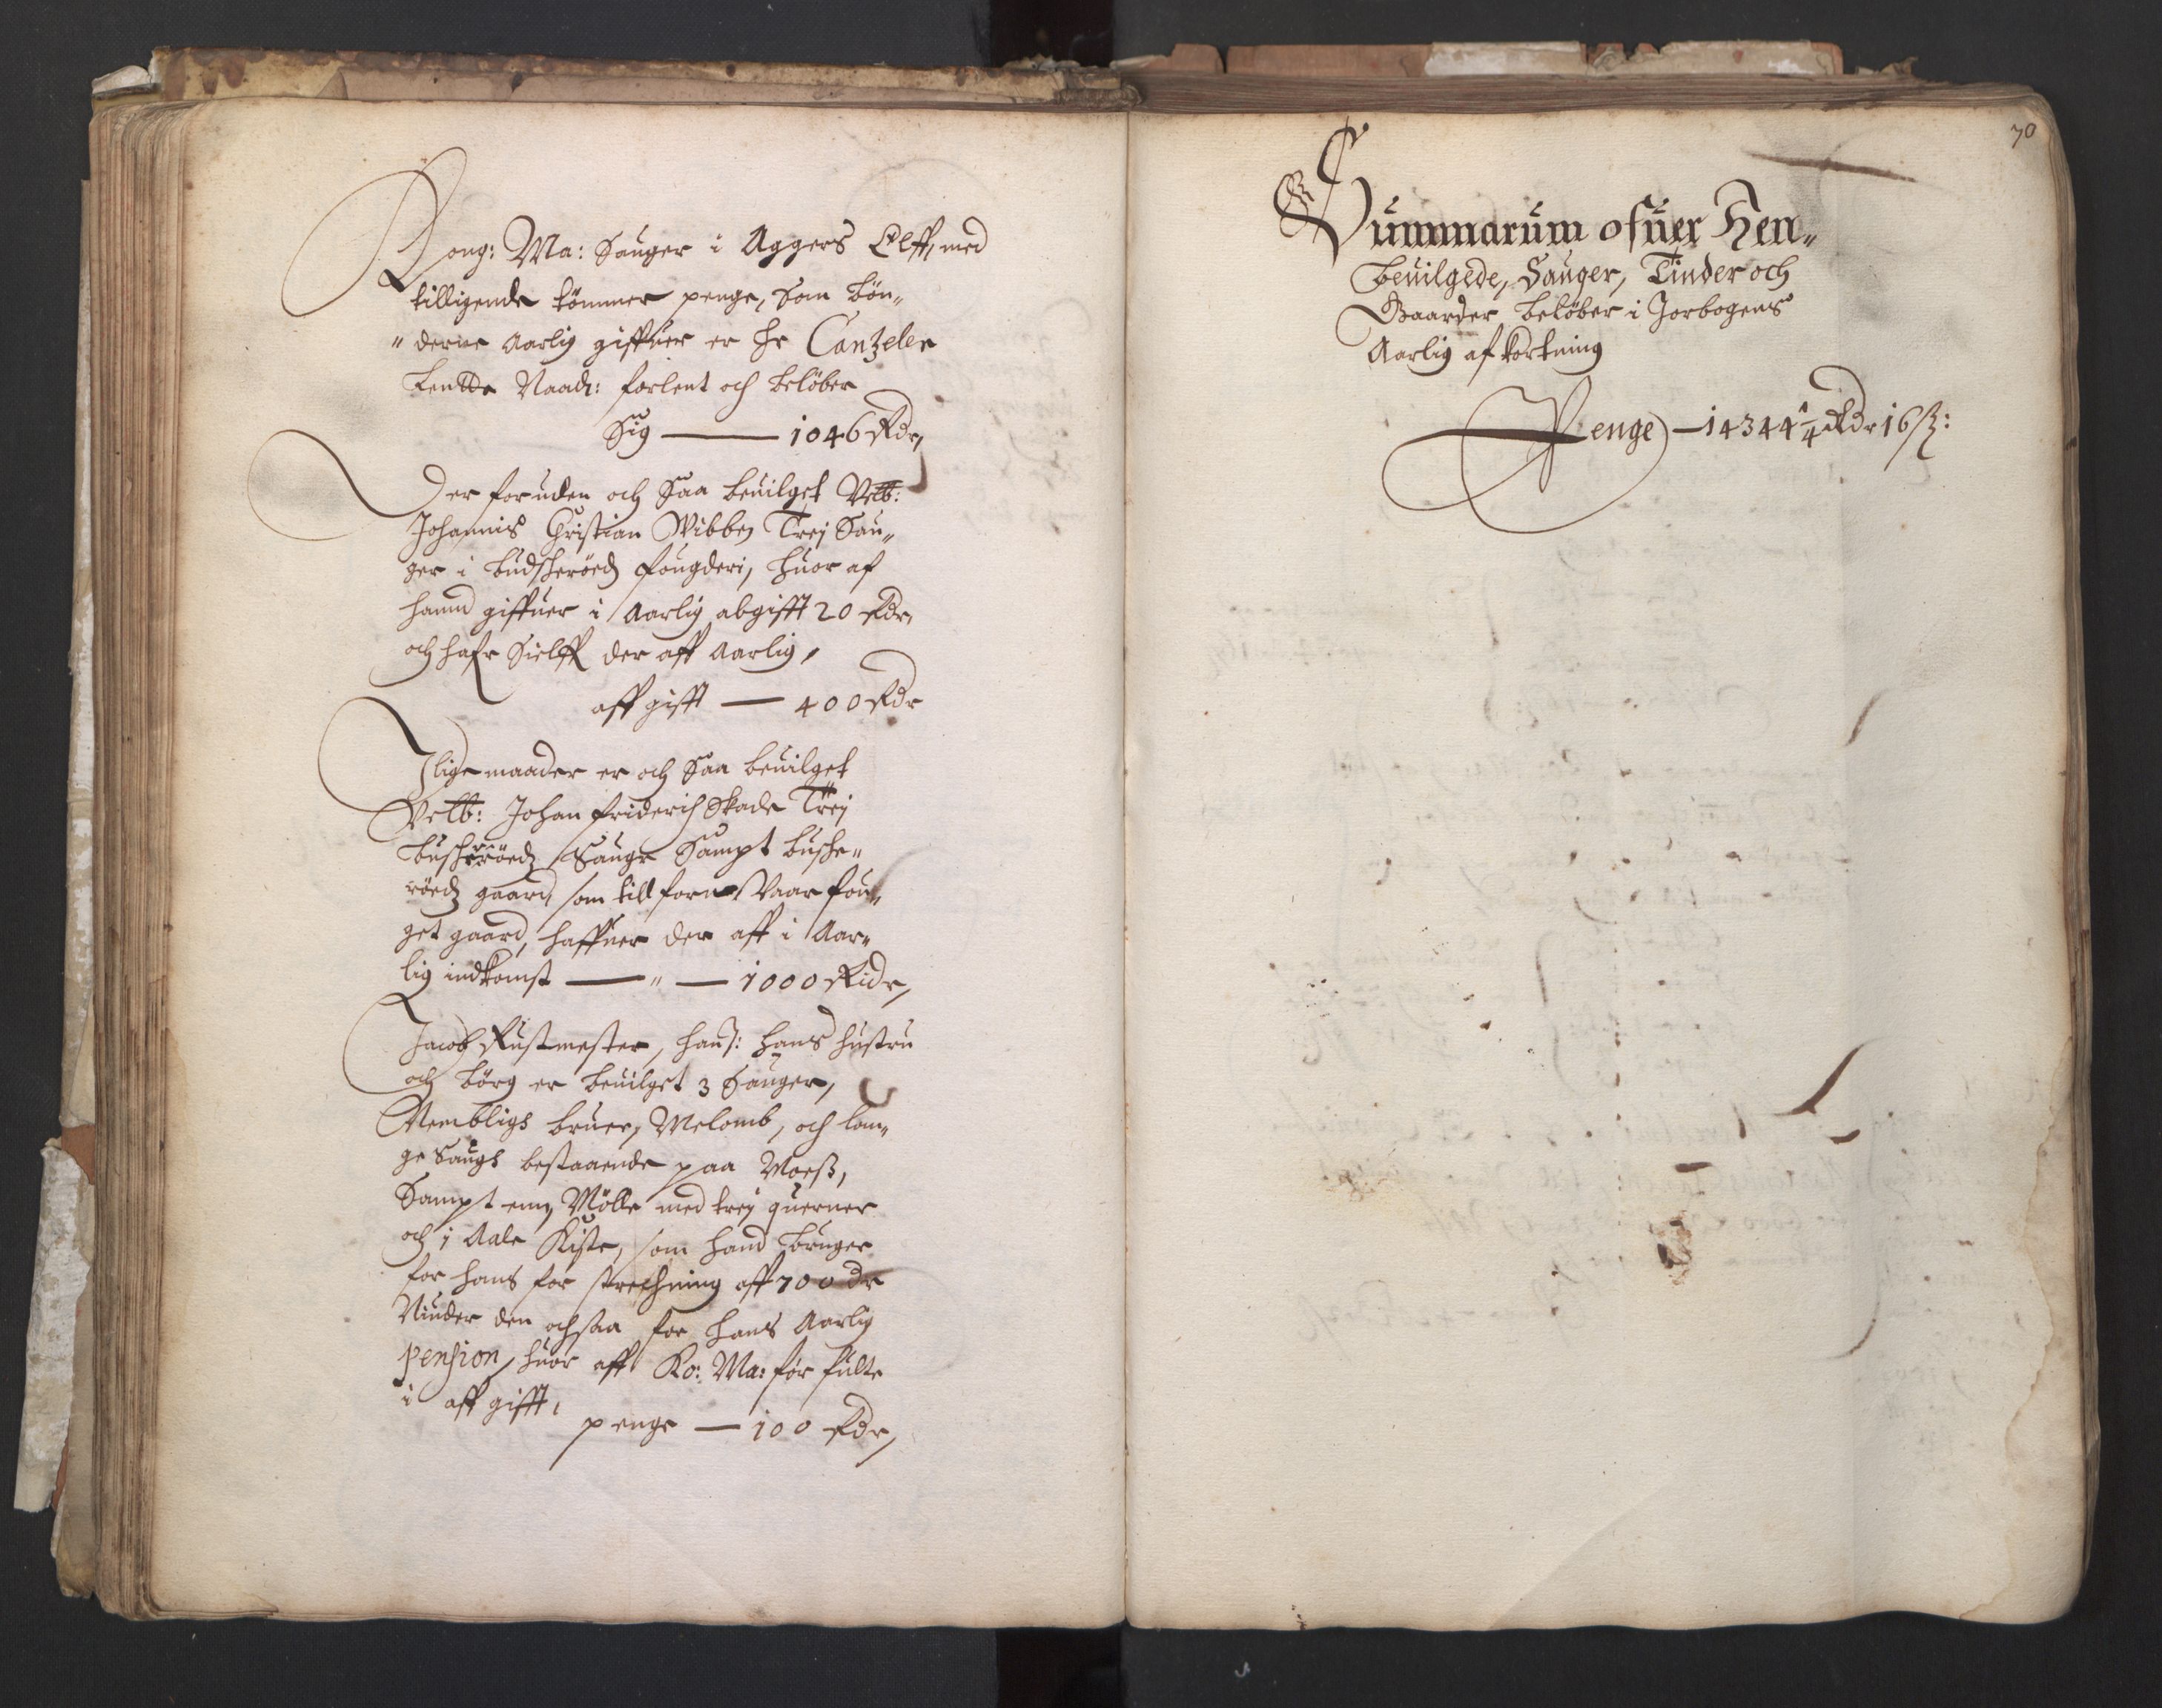 Kong: Ma: Sauger i Aggers Elff, med
tilligende tömmer penge, som bön„
„derne Aarlig giffuer er Hr Cantzeler
Naad: forlent och belöber
Sig — 1046 Rdr,
Der foruden och Saa beuilget Velb:
Johannis Christian Wibbe Trej Sau„
ger i budscheröed fougderi, huor af
hannd giffuer i Aarlig abgifft 20 Rdr,
och hafr Sielff der aff Aarlig,
aff gifft — 400 Rdr
I lige maader er och Saa beuilget
Velb: Johan friderich Skade Trej
buscheröedz Sauge Sampt busche„
röedz gaard, som till forne Vaar fou„
get gaard, haffuer der aff i Aar„
lig indkomst — „ — 1000 Ridr,
Jacob Rustmester, hans hustru
och börn er beuilget 3 Sauger,
bruer, Melomb, och lan„
ge Saugs bestaaende paa Moeß,
Sampt enn Mölle med trej querner
och 1 Aale Kiste, som hand bruger
for hans for strechning aff 700 dr
Niuder den ochsaa for hans Aarlig
pension, huor aff Ko: Ma: för fulte
i aff gifft,
penge — 100 Rdr,
70
Summarum ofuer Hen„
beuilgede, Sauger, Tinder och
Gaarder belöber i Jorbogens
Aarlig af kortning
Penge — 14344 1/4 Rdr 16 ß: